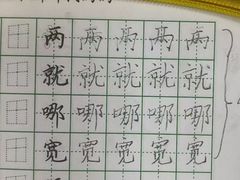 两 两 两 两 两
就 就 就 就 就
哪 哪 哪 哪 哪
宽 宽 宽 宽 宽